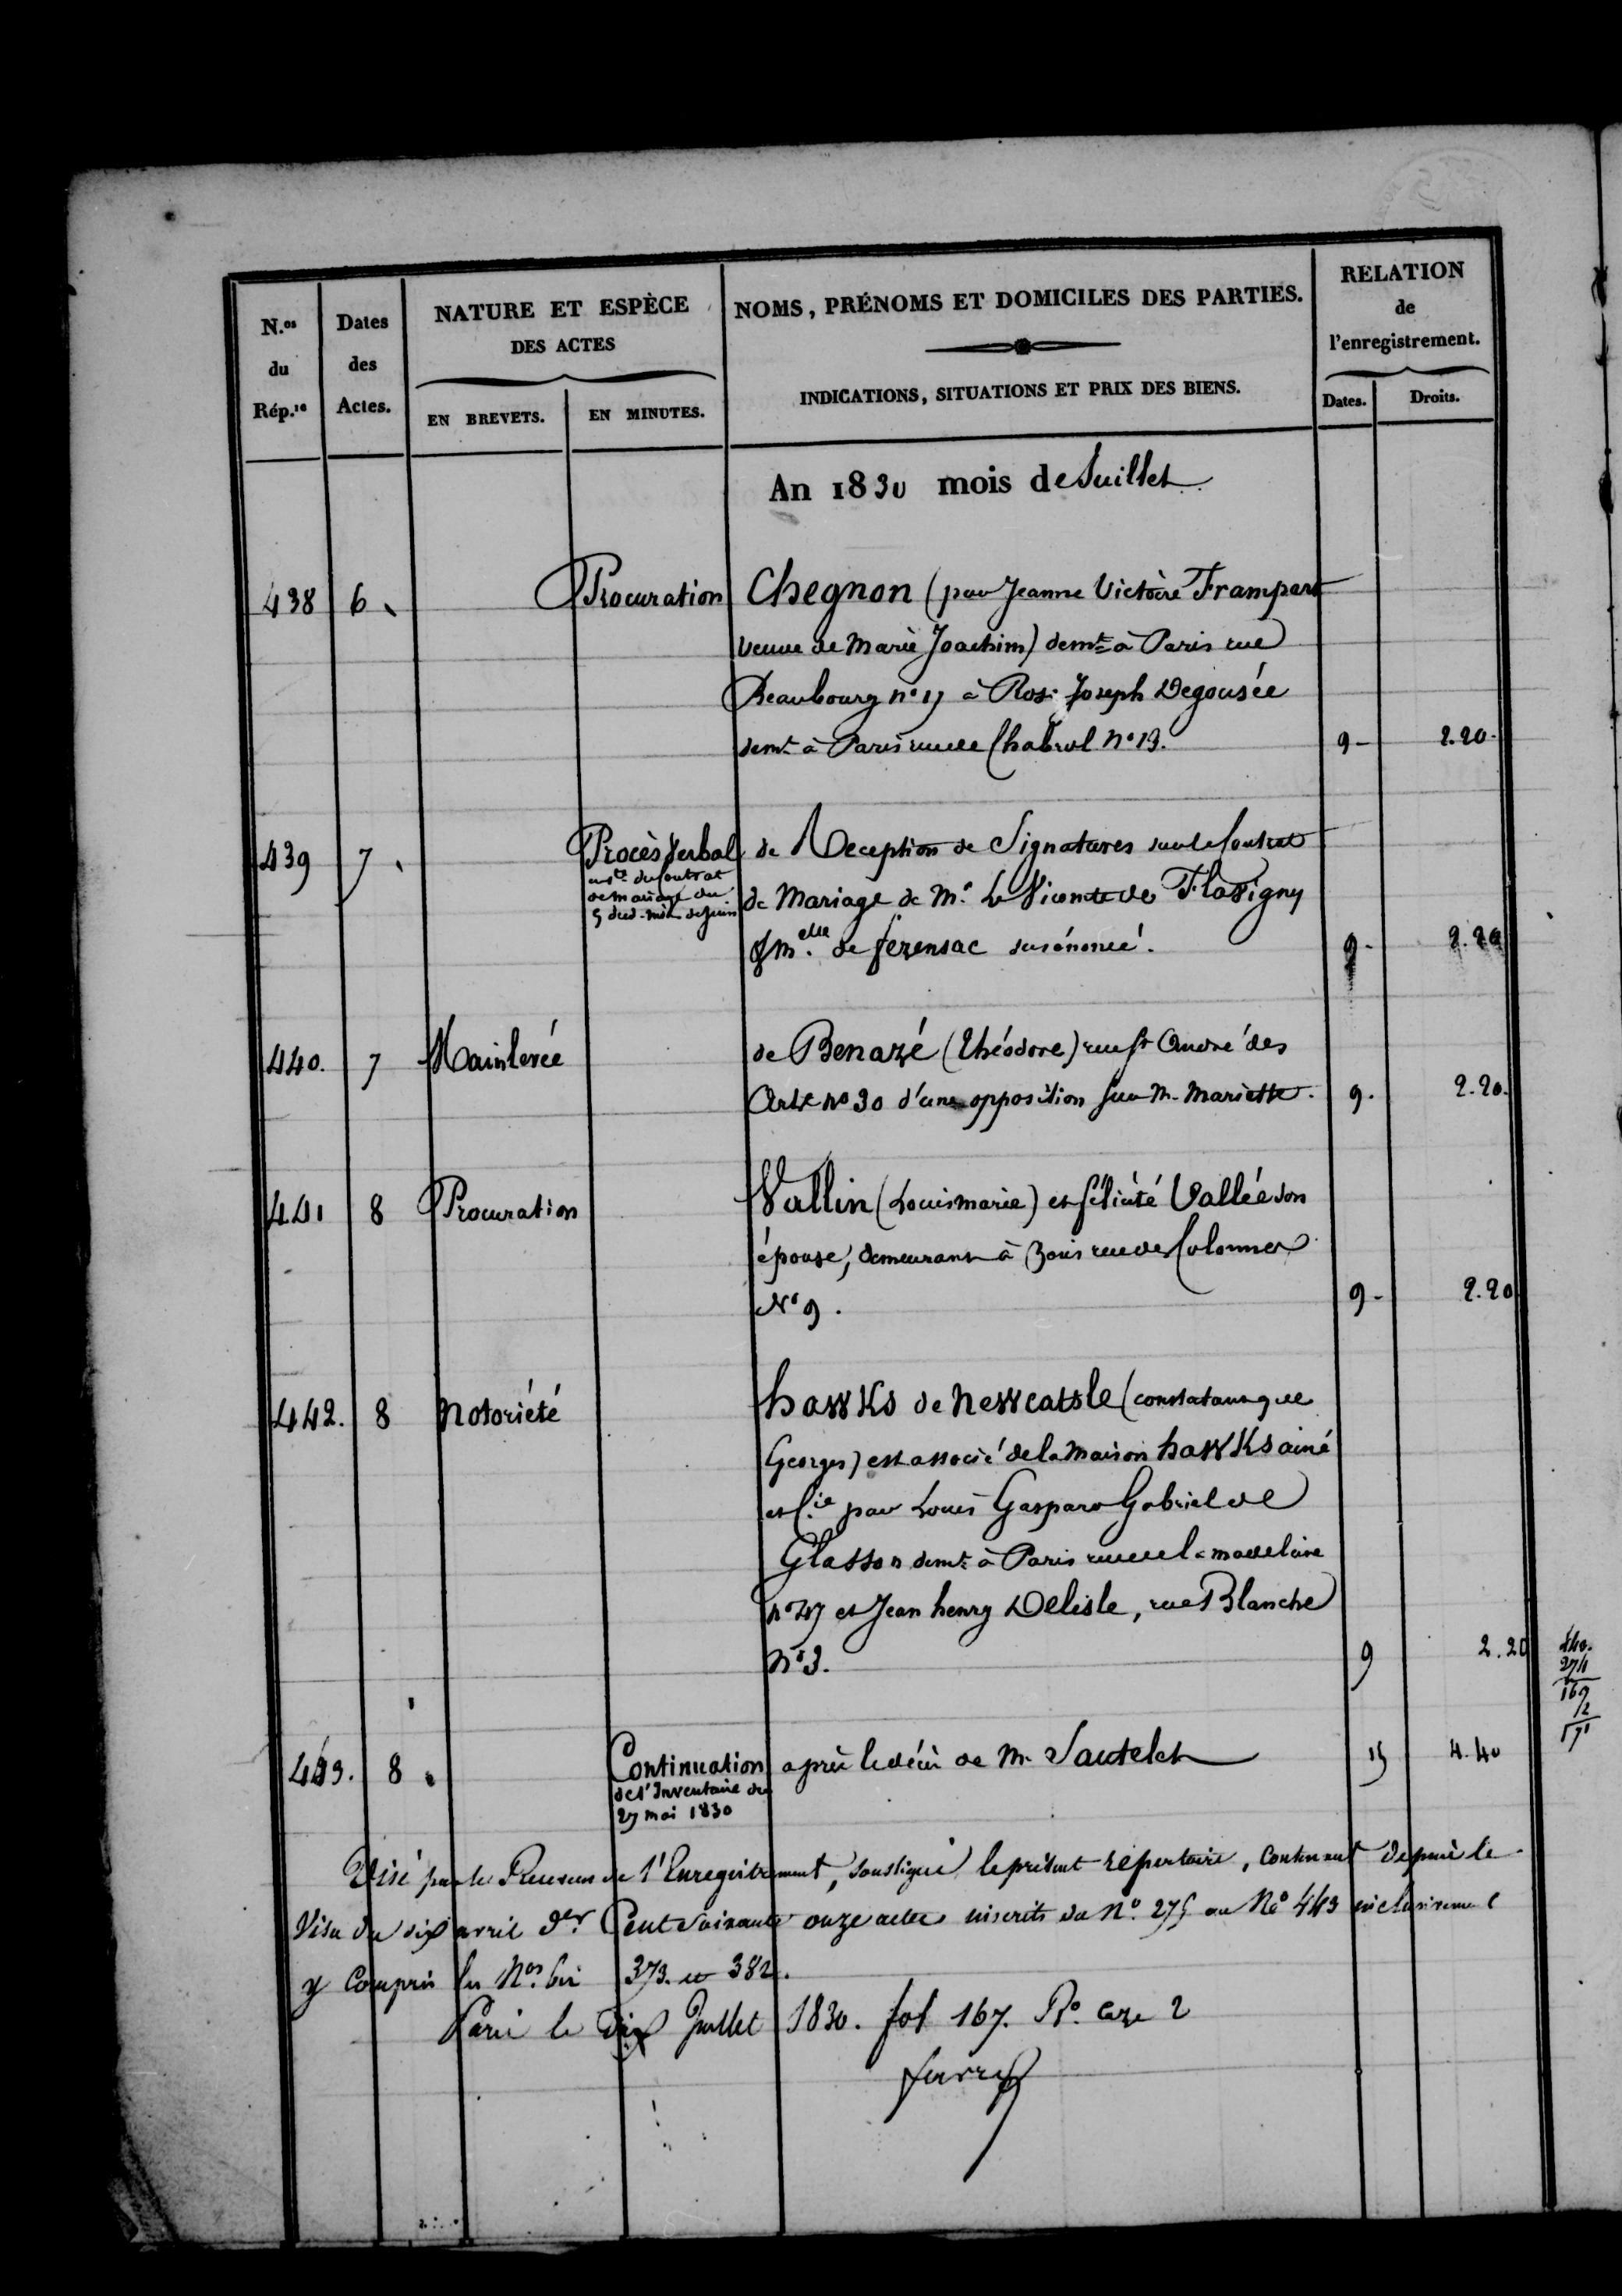 N.os du Rép.re
Dates des Actes.
NATURE ET ESPÈCE DES ACTES
EN BREVETS.
EN MINUTES.
NOMS, PRÉNOMS ET DOMICILES DES PARTIES.
INDICATIONS, SITUATIONS ET PRIX DES BIENS.
RELATION de l'enregistrement.
Dates.
Droits.
An 1830 mois de Juillet
438 6 Procuration Chegnon (par Jeanne Victoire Frampart
veuve de Marie Joachim) demt à Paris rue
Beaubourg n° à Rose Joseph Degousée
demt à Paris rue de Chabrol N° 19. 9 2.20
439 7 Procès Verbal de Réception de Signatures sur le Contrat
du Contrat
de mariage du
de Juin
de Mariage de Mr. Le Vicomte de Flavigny
& Melle de fezensac susénoncé. 9 2.20
440. 7 Mainlevée de Benazé (Théodore) rue St André des
Arts N° 30 d'une opposition sur M. Mariette. 9. 2.20.
441 8 Procuration Vallin (Louis marie) et félicité Vallée son
épouse, demeurant à Paris rue des Colonnes
N° 9. 9 2.20
442. 8 Notoriété hawks de Newcatsle (constatant que
Georges) est associé de la Maison hawks ainé
et Cie par Louis Gaspard Gabriel de
Glasson demt à Paris rue de la madelaine
et Jean henry Delisle, rue Blanche
N° 3. 9 2.20
443. 8 Continuation après le décès de M. Sautelet 15 4.40
de l'Inventaire du
27 mai 1830
440.
271
169
12
171
Visé par le Receveur de l'Enregistrement, soussigné le présent répertoire, contenant depuis le
Visa du dix avril der Cent soixante onze actes inscrits du N° 275 au N° 443 inclusivement
y compris les Nos bis 373. et 382.
Paris le dix Juillet 1830. fol 167. Ro. Case 2